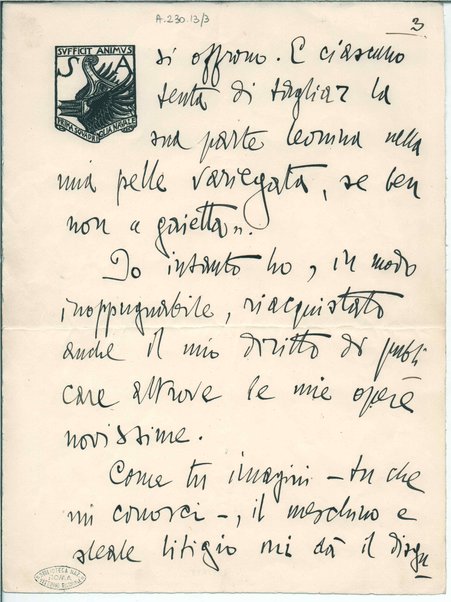 A.230.13/3
3
SVFFICIT ANIMVS
S A
PRIMA SQVADRIGLIA NAVALE
si offrono. E ciascuno
tenta di tagliar la
sua parte leonina nella
mia pelle variegata, se ben
non « gaietta ».
Io intanto ho, in modo
inoppugnabile, riacquistato
anche il mio diritto di pubbli
care altrove le mie opere
novissime.
Come tu imagini – tu che
mi conosci –, il meschino e
sleale litigio mi dà il disgu
BIBLIOTECA NAZ
ROMA
VITTORIO EMANUELE